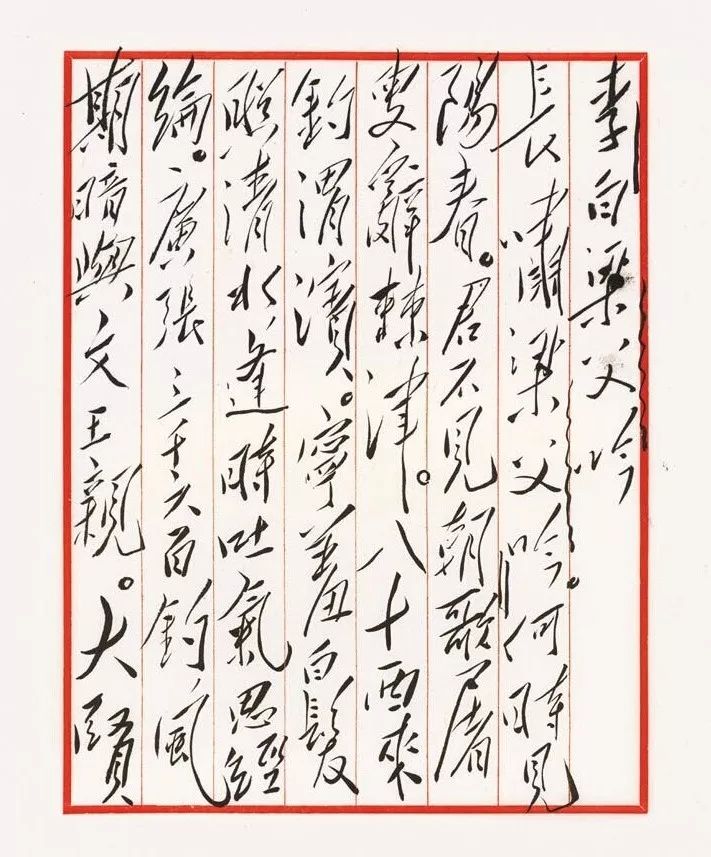 李白梁父吟
長嘯梁父吟。何時見
陽春。君不見朝歌屠
叟辭棘津。八十西來
釣渭濱。寧羞白髮
照清水逢時吐氣思經
綸。廣張三千六百釣風
期暗與文王親。大賢